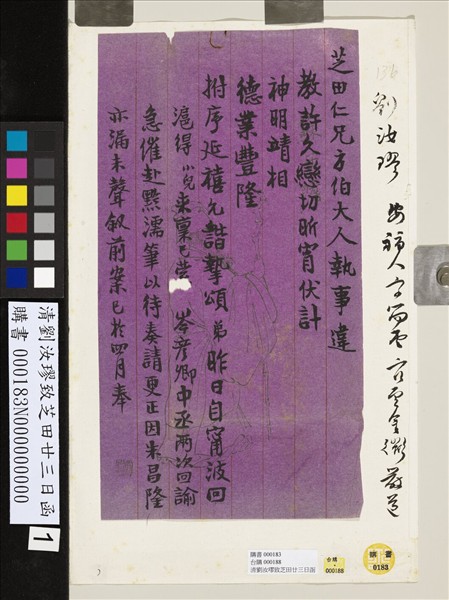 芝田仁兄方伯大人執事違
教許久戀切昕宵伏計
神明靖相
德業豐隆
拊序延禧允諧摯頌弟昨日自甯波回
滬得小兒來稟已蒙 岑彥卿中丞兩次回諭
急催赴黔濡筆以待奏請更正因朱昌隆
亦漏未聲敘前案已於四月奉
136
劉汝璆
清劉汝璆致芝田廿三日函
購書 000183N000000000
1
購書 000183
台購 000188
清劉汝璆致芝田廿三日函
台購
000188
購書
0183